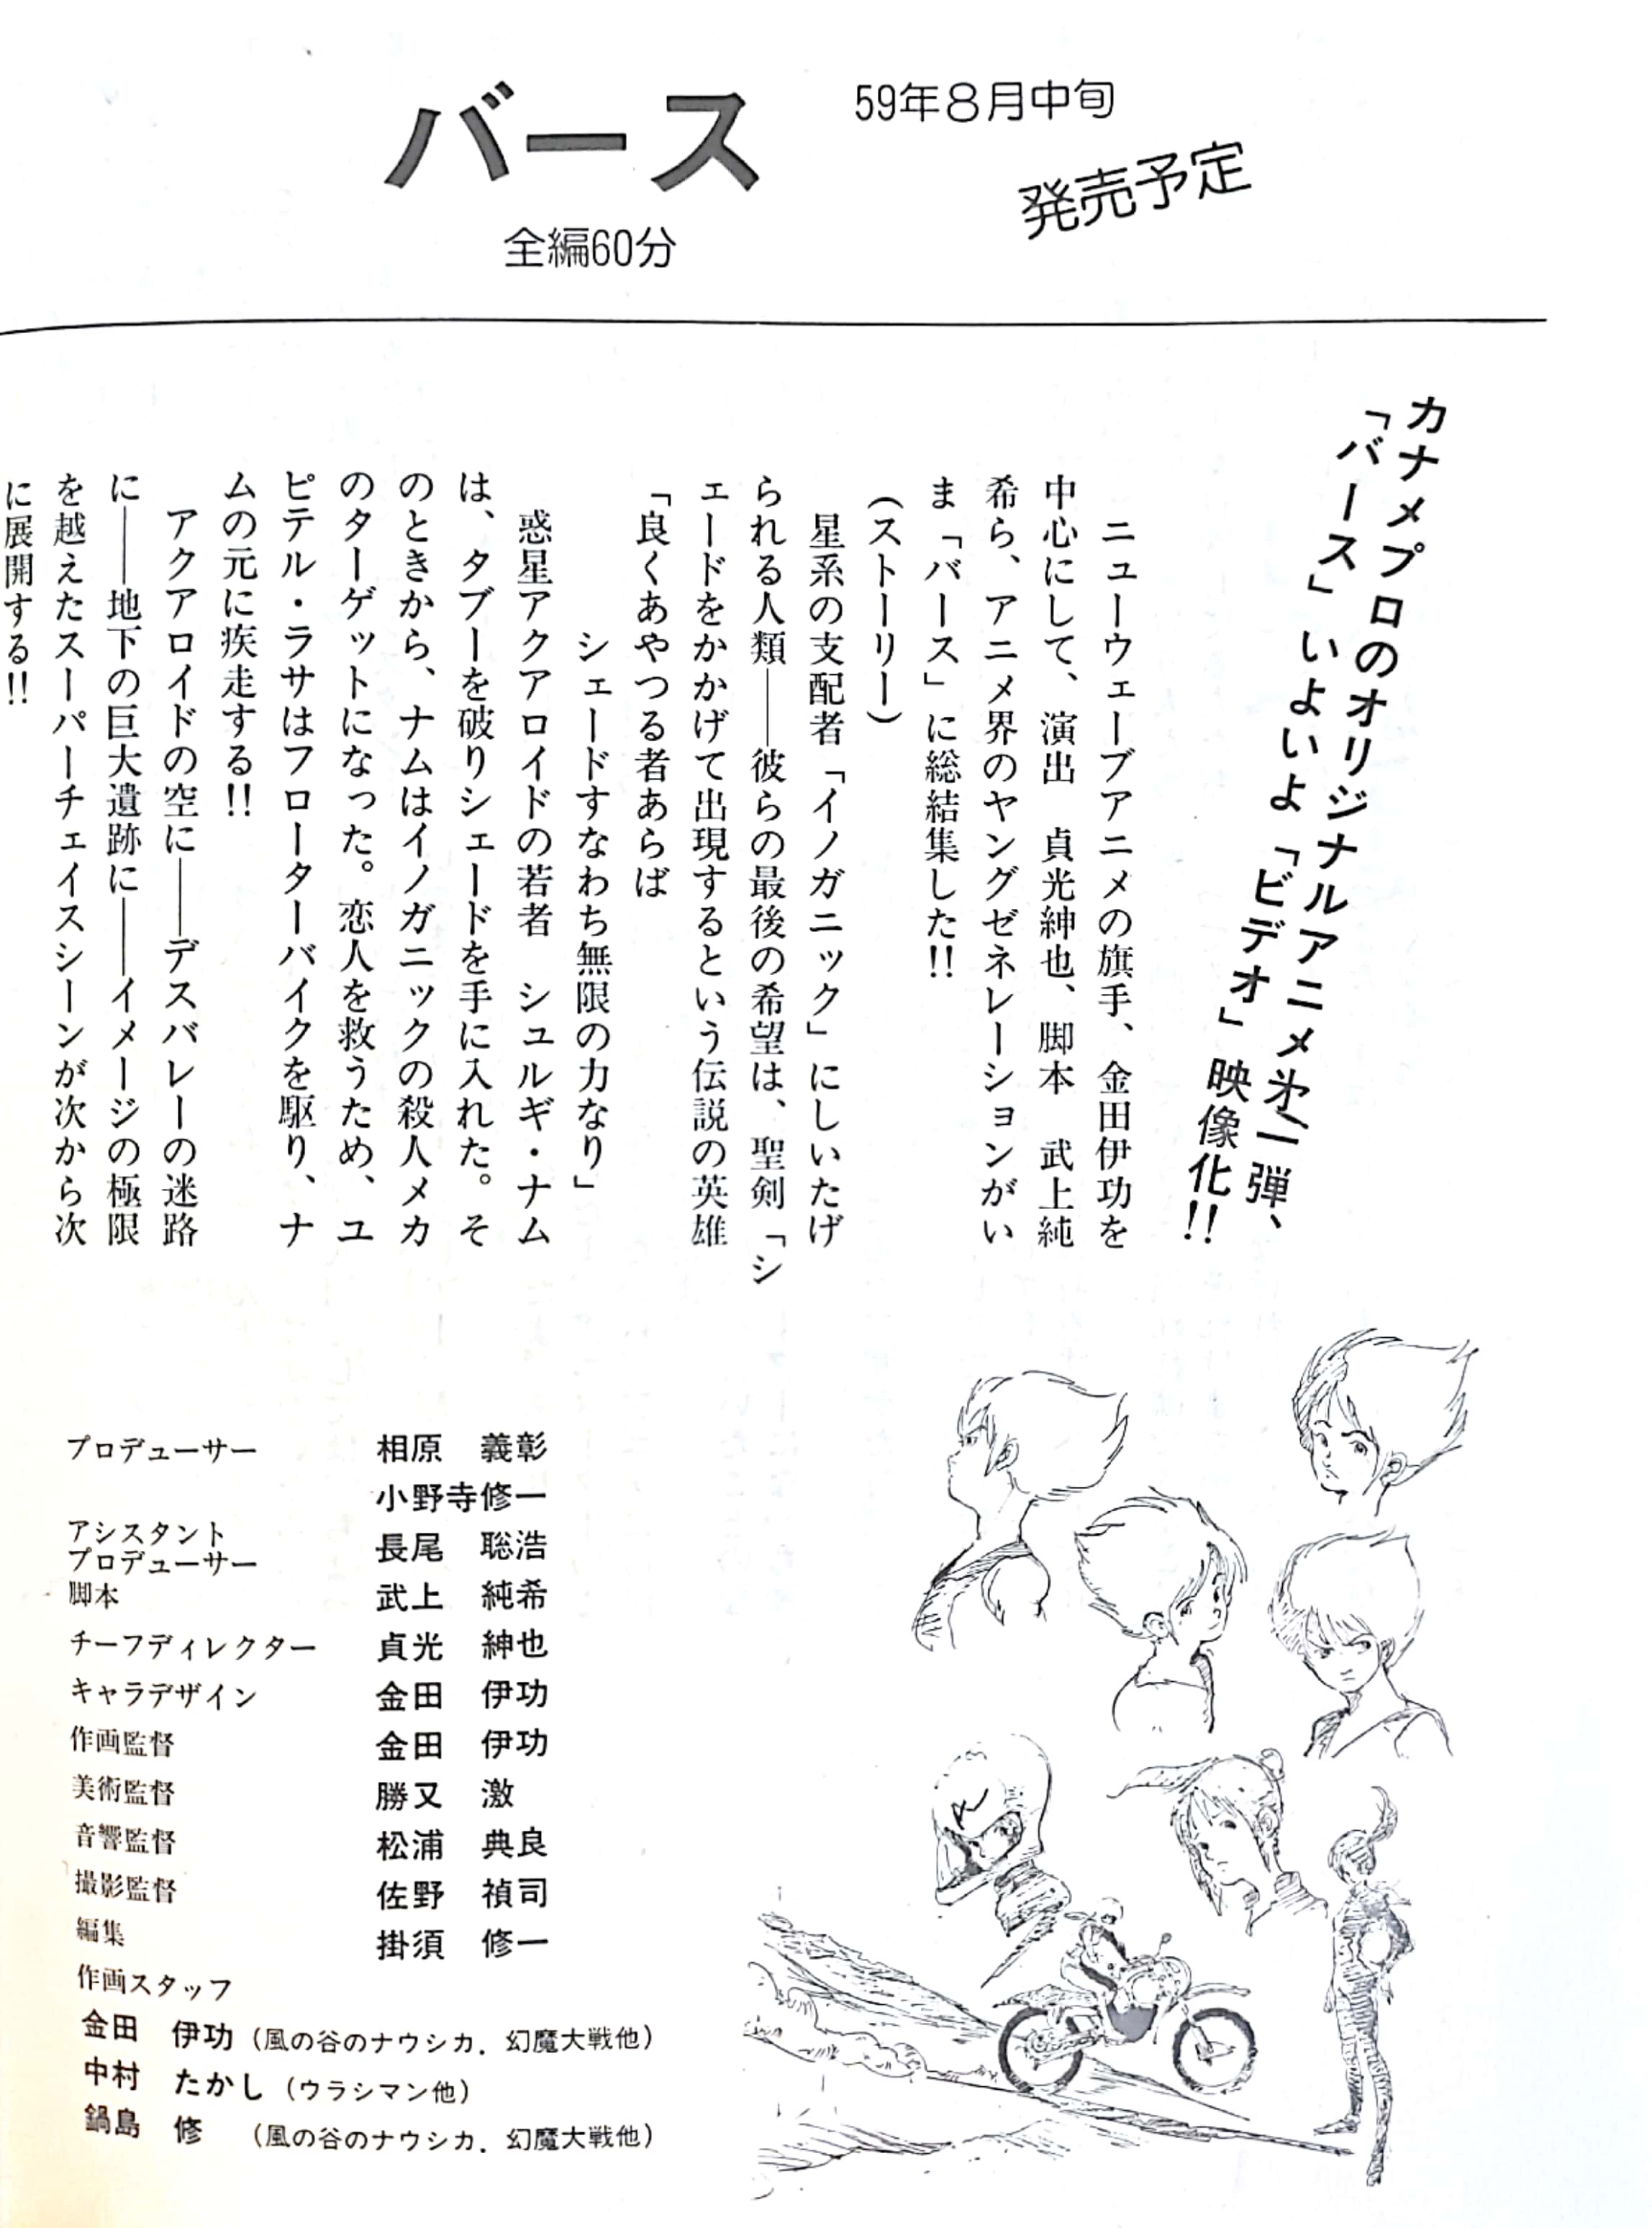 バース
59年8月中旬
発売予定
全編60分
カナメプロのオリジナルアニメ㐧一弾、
「バース」いよいよ「ビデオ」映像化!!
ニューウェーブアニメの旗手、金田伊功を
中心にして、演出　貞光紳也、脚本　武上純
希ら、アニメ界のヤングゼネレーションがい
ま「バース」に総結集した!!
（ストーリー）
星系の支配者「イノガニック」にしいたげ
られる人類――彼らの最後の希望は、聖剣「シ
ェードをかかげて出現するという伝説の英雄
「良くあやつる者あらば
シェードすなわち無限の力なり」
惑星アクアロイドの若者　シュルギ・ナム
は、タブーを破りシェードを手に入れた。そ
のときから、ナムはイノガニックの殺人メカ
のターゲットになった。恋人を救うため、ユ
ピテル・ラサはフローターバイクを駆り、ナ
ムの元に疾走する!!
アクアロイドの空に――デスバレーの迷路
に――地下の巨大遺跡に――イメージの極限
を越えたスーパーチェイスシーンが次から次
に展開する!!
プロデューサー　相原　義彰
小野寺修一
アシスタント
プロデューサー　長尾　聡浩
脚本　武上　純希
チーフディレクター　貞光　紳也
キャラデザイン　金田　伊功
作画監督　金田　伊功
美術監督　勝又　激
音響監督　松浦　典良
撮影監督　佐野　禎司
編集　掛須　修一
作画スタッフ
金田　伊功（風の谷のナウシカ．幻魔大戦他）
中村　たかし（ウラシマン他）
鍋島　修　（風の谷のナウシカ．幻魔大戦他）